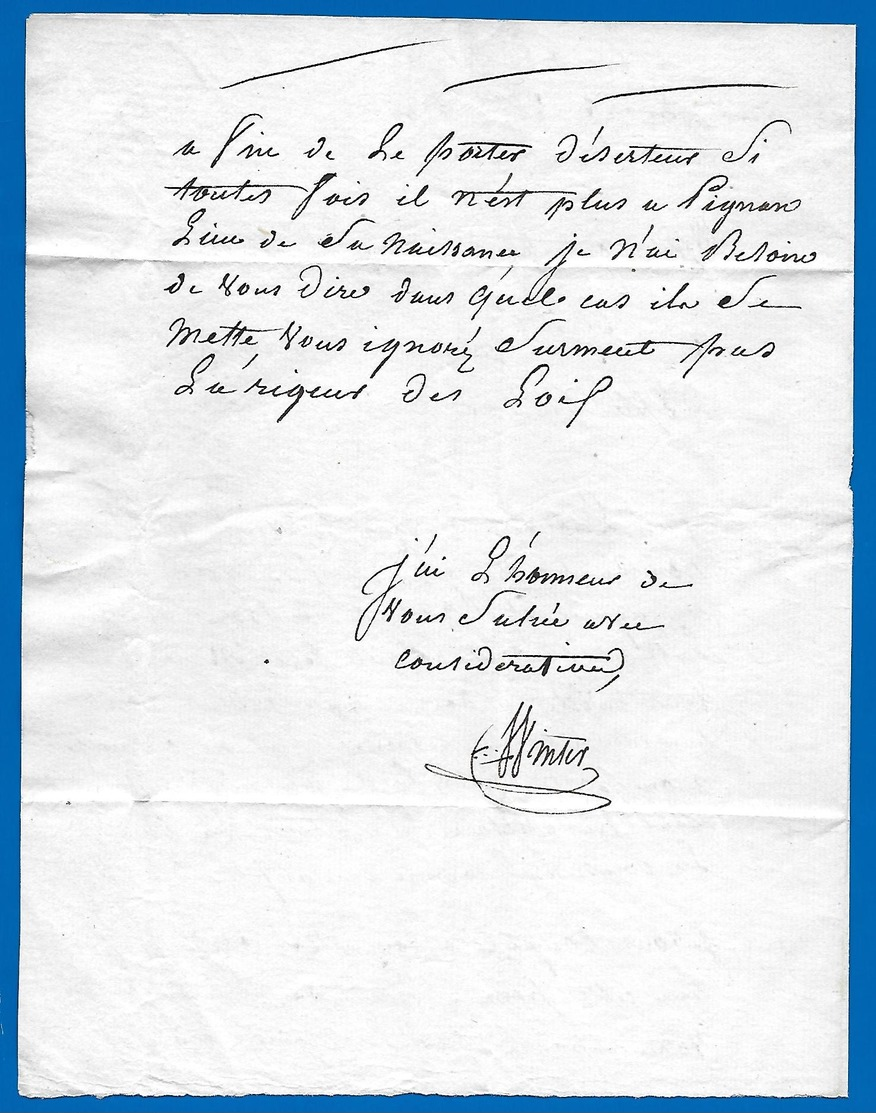 a fin de Le porter déserteur Si
toutes fois il n'ést plus a Pignan
Lieu de Sa Naissance je N'ai Besoin
de Vous dire dans Quél cas ils Se
mette Vous ignoréz Surment pas
La rigeur des Loix
j'ai L'honneur de
Vous Saluée avec
Consideration
Winter